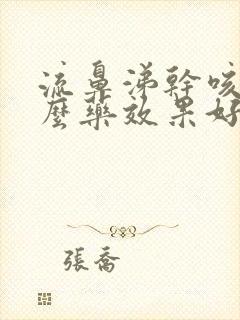 流鼻涕幹咳
麼藥效果好
張喬